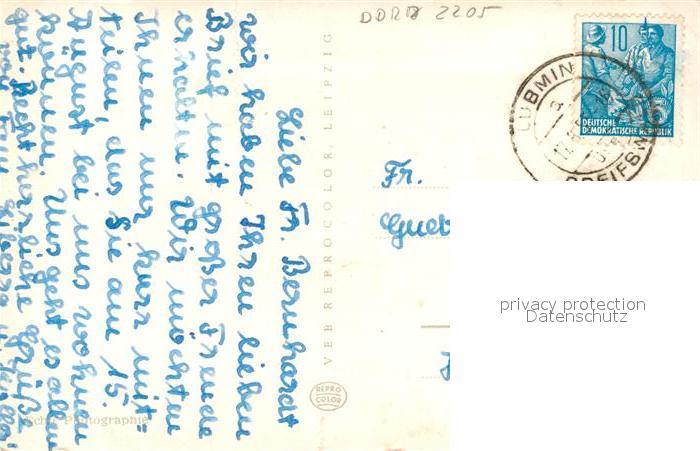 DDRB 2205
Liebe Fr. Bernhardt
wir haben Ihren lieben
Brief mit großer Freude
erhalten. Wir möchten
Ihnen nur kurz mit=
teilen, das Sie am 15.
August bei uns wohnen
können. Uns geht es allen
gut. Recht herzliche Grüße
VEB REPROCOLOR, LEIPZIG
REPRO
COLOR
Echte Photographie
Fr.
10
DEUTSCHE
DEMOKRATISCHE REPUBLIK
LUBMIN
GREIFSW
privacy protection
Datenschutz